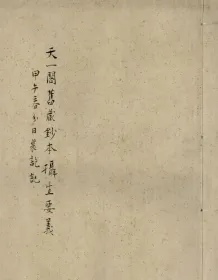 天一閣舊藏鈔本攝生要義
甲午春分日晨記